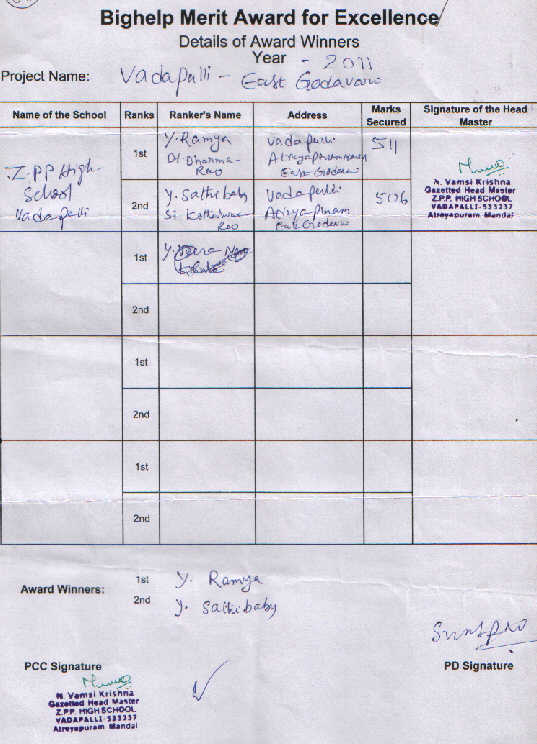 Bighelp Merit Award for Excellence
Details of Award Winners
Year - 2011
Project Name: Vadapalli - East Godavari
Name of the School Ranks Ranker's Name Address Marks Secured Signature of the Head Master
Z.PP High School Vadapalli
1st Y. Ramya D/. Dharma-Rao Vadapalli East Godavari 511
2nd Y. Sathibaby Vadapalli East Godavari 506
N. Vamsi Krishna
Gazetted Head Master
Z.P.P. HIGH SCHOOL
VADAPALLI-533237
Atreyapuram Mandal
1st Y.
2nd
1st
2nd
1st
2nd
Award Winners:
1st Y. Ramya
2nd Y. Sathibaby
PCC Signature
PD Signature
N. Vamsi Krishna
Gazetted Head Master
Z.P.P. HIGH SCHOOL
VADAPALLI-533237
Atreyapuram Mandal